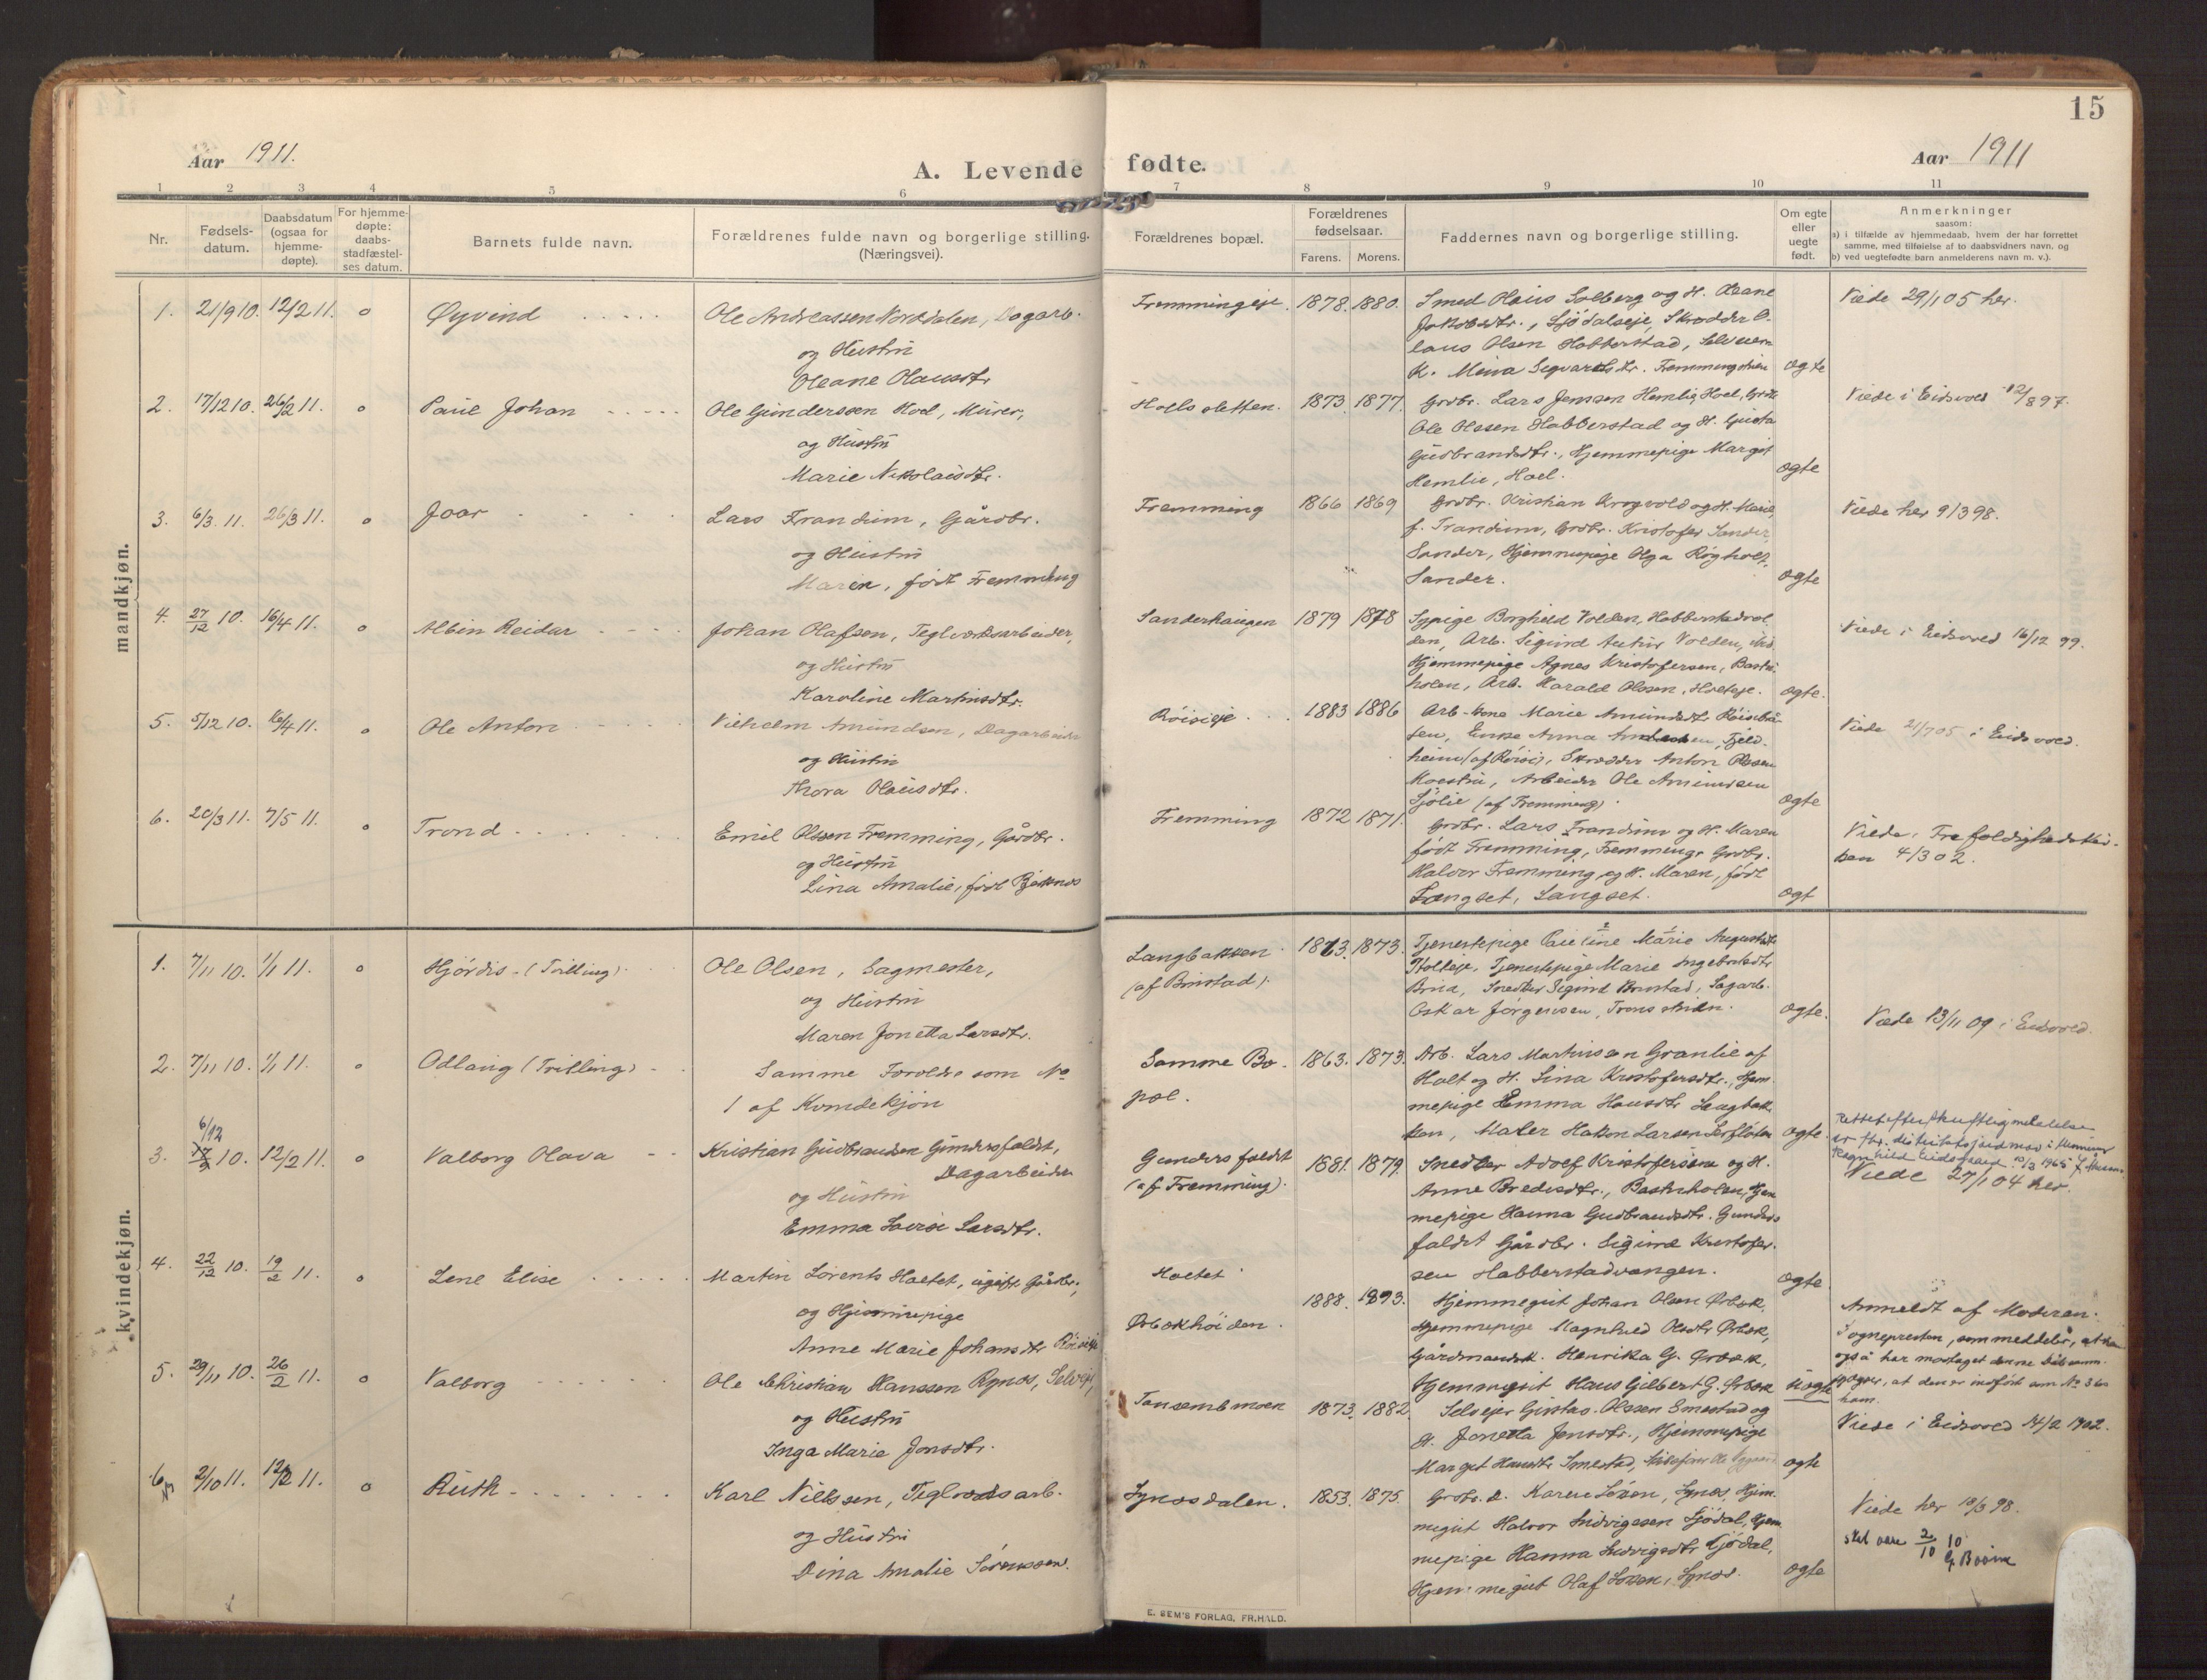 15
Aar 1911.
A. Levende fødte.
Aar 1911
1 2 3 4 5 6 7 8 9 10 11
Nr.
Fødsels-
datum.
Daabsdatum
(ogsaa for
hjemme-
døpte).
For hjemme-
døpte:
daabs-
stadfæstel-
ses datum.
Barnets fulde navn.
Forældrenes fulde navn og borgerlige stilling.
(Næringsvei).
Forældrenes bopæl.
Forældrenes
fødselsaar.
Farens. Morens.
Faddernes navn og borgerlige stilling.
Om egte
eller
uegte
født.
Anmerkninger
saasom:
a) i tilfælde av hjemmedaab, hvem der har forrettet
samme, med tilføielse af to daabsvidners navn, og
b) ved uegtefødte barn anmelderens navn m. v.).
mandkjøn.
1. 21/9 10. 12/2 11. o Øyvind
Ole Andreassen Norddalen, Dagarb.
og Hustru
Oleane Olausdtr
Fremmingeje. 1878. 1880.
Smed Olaus Solberg og H. Oleane
Jakobsdtr., Sjødalseje, Skrædder O-
laus Olsen Habberstad, Selveier-
K. Mina Sigvartsdtr. Fremmingshien
ægte
Viede 29/1 05 her.
2. 17/12 10. 26/2 11. o Paul Johan
Ole Gundersen Hoel, Murer,
og Hustru
Marie Nikolaisdtr.
Hoelssletten. 1873. 1877.
Grdbr. Lars Jensen Hemli, Hoel, Grdb
Ole Olssen Habberstad og H. Gusta
Gudbrandsdtr., Hjemmepige Margit
Hemlie, Hoel.
ægte
Viede i Eidsvold 12/8 97.
3. 6/3. 11. 26/3 11. o Joar
Lars Trandum, Gårdbr.
og Hustru
Maren, født Fremming
Fremming 1866 1869
Grdbr. Kristian Krogvold og H. Marie
f. Trandum, Grdbr. Kristofer Sander,
Sander, Hjemmepige Olga Røgholt,
Sander.
ægte
Viede her 9/3 98.
4. 27/12 10. 16/4 11. o Albin Reidar
Johan Olafsen, Teglværksarbeider,
og Hustru
Karoline Martinsdtr.
Sanderhaugen 1879 1878
Sypige Borghild Volden, Habberstadvol-
den, Arb. Sigurd Artur Volden, ibid.
Hjemmepige Agnes Kristofersen, Bastu-
holen, Arb. Harald Olssen, Holteje.
ægte.
Viede i Eidsvold 16/12 99.
5. 5/12 10. 16/4 11. o Ole Anton
Vilhelm Amundsen, Dagarbeider
og Hustru
Thora Olausdtr.
Røisieje 1883 1886
Arb.-kone Marie Amundsdtr Røisiba-
ken, Enke Anna Andersen, Fjeld-
heim (af Røisi), Skrædder Anton Olssen
Moestu, Arbeider Ole Amundsen
Sjølie (af Fremming).
ægte
Viede 21/7 05 i Eidsvold.
6. 20/3 11. 7/5 11. o Trond
Emil Olssen Fremming, Gårdbr.
og Hustru
Lina Amalie, født Bjøknes
Fremming 1872 1871.
Grdbr. Lars Trandum og H. Maren
født Fremming, Fremming, Grdbr.
Halvor Fremming og H. Maren, født
Langset, Langset.
ægt
Viede i Trefoldighedskir-
ken 4/3 02.
kvindekjøn.
1. 7/11 10. 1/1 11. o Hjørdis (Tvilling)
Ole Olsen, Sagmester,
og Hustru
Maren Jonetta Larsdtr.
Langbakken
(af Brustad). 1863. 1873.
Tjenestepige Pauline Marie Augustsdtr
Holteje, Tjenestepige Marie Ingebretsdtr
Snedker Sigurd Brustad, Sagarb.
Oskar Jørgensen,
ægte.
Viede 13/11 09 i Eidsvold.
2. 7/11 10. 1/1 11. o Odlaug (Tvilling)
Samme Forældre som No
1 af Kvindekjøn
Samme Bo-
pæl. 1863. 1873.
Arb. Lars Martinssen Granlie af
Holt og H. Lina Kristofersdtr., Hjem-
mepige Emma Hansdtr Langbak-
ken, Maler Hakon Larsen
ægte.
Rettet efter skriftlig meddelelse
er fhv. distriktsjordmor i Minnesund
Ragnhild Eidsgaard. 10/3 1965
3. 6/12 10. 12/2 11. o Valborg Olava
Kristian Gudbrandsen Gundersfaldet,
Dagarbeider
og Hustru
Emma Lovise Larsdtr.
Gundersfaldet
(af Fremming). 1881. 1879.
Snedker Adolf Kristofersen og H.
Anne Bredesdtr., Bastuholen, Hjem
mepige Hanna Gudbrandsdtr. Gunders
faldet Gårdbr. Sigurd Kristofer-
sen Habberstadvangen.
ægte.
Viede 27/1 04 her.
4. 22/12 10. 19/2 11. o Lene Elise
Martin Lorents Holtet, ugift Gårdbr.,
og Hjemmepige
Anne Marie Johansdtr Røisieje
Holtet
Ørbækhøiden. 1888. 1893.
Hjemmegut Johan Olsen Ørbæk,
Hjemmepige Magnhild Olsdtr Ørbæk,
Gårdmandsk. Henrikka G. Ørbæk,
Hjemmegut Hans Gilbert G. Ørbæk
uægte
Anmeldt af Moderen.
Sognepresten, som meddeler, at han
også har mottaget denne
opgaver, at den er indført som No 3 hos
ham.
5. 29/11 10. 26/2 11. o Valborg
Ole Christian Hanssen Rynes, Selvejer,
og Hustru
Inga Marie Jonsdtr.
Tønsembmoen 1873. 1882.
Selvejer Gustav Olssen Smestad og
H. Jonetta Jensdtr., Hjemmepige
Margit Hansdtr Smestad,
ægte
Viede i Eidsvold 14/2 1902.
6. 2/10 11. 12/3 11. o Ruth
Karl Nilssen, Teglværksarb.
og Hustru
Dina Amalie Sørenssen.
Synæsdalen. 1853. 1875.
Grdbr. e. Karen Synæs, Hjem-
megut Halvor Ludvigssen Sjødal, Hjem
mepige Hanna Ludvigsdtr Sjødal,
Hjemmegut Olaf Synæs.
ægte
Viede her 10/3 98.
skal være 2/10 10
E. SEM'S FORLAG, FR.HALD.